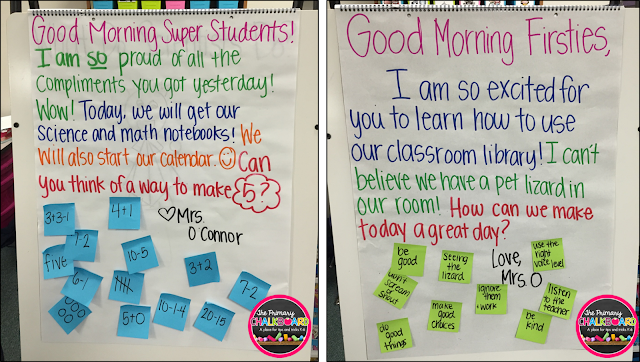 Good Morning Super Students!
I am so proud of all the
Compliments you got yesterday!
Wow! Today, we will get our
Science and math notebooks! We
Will also start our calendar. Can
you think of a way to make 5?
Mrs.
O'Connor
3+3-1
4+1
7-2
10-5
five
3+2
6-1
7-2
5+0
10-1-4
20-15
The Primary
CHALKBOARD
A place for tips and tricks K-2
Good Morning Firsties,
I am so excited for
you to learn how to use
our classroom library! I can't
believe we have a pet lizard in
our room! How can we make
today a great day?
Love,
Mrs. O
be
good
Seeing the
lizard
use the
right
voice level
won't
scream or
shout
ignore
them
work
listen
to the
teacher
make
good
choices
be
kind
do
good
things
The Primary
CHALKBOARD
A place for tips and tricks K-2